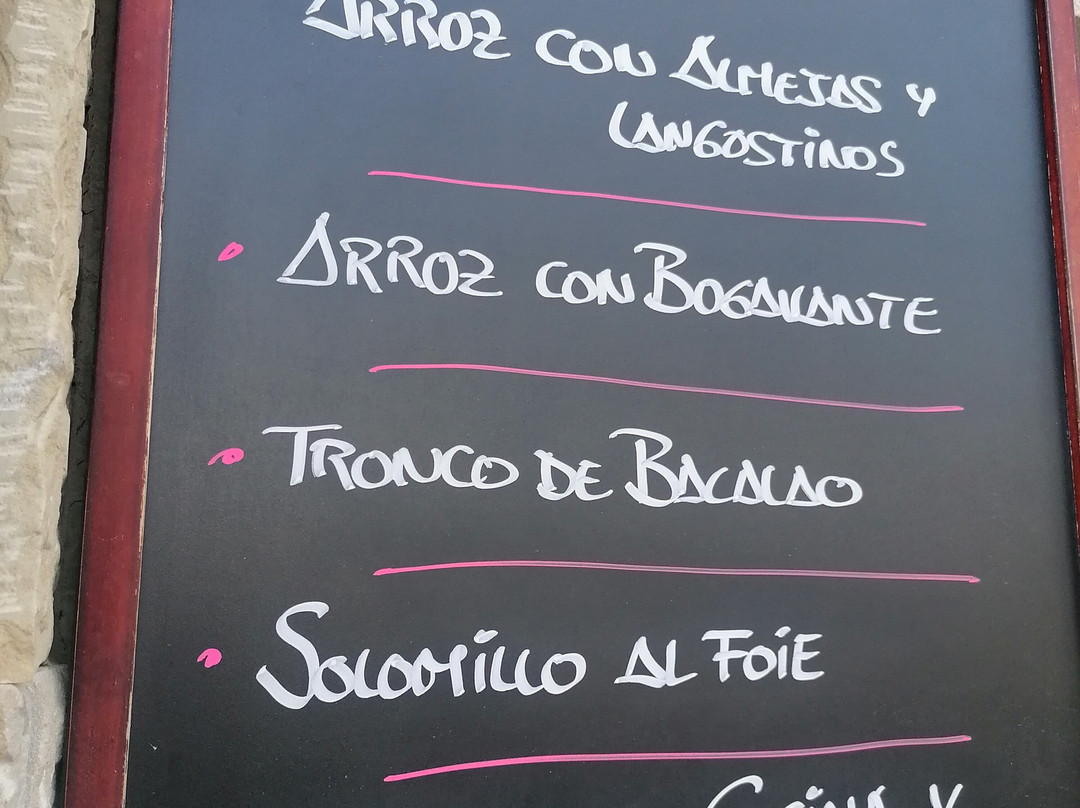 ARROZ CON ALMEJAS Y
LANGOSTINOS
ARROZ CON BOGAVANTE
TRONCO DE BACALAO
SOLOMILLO AL FOIE